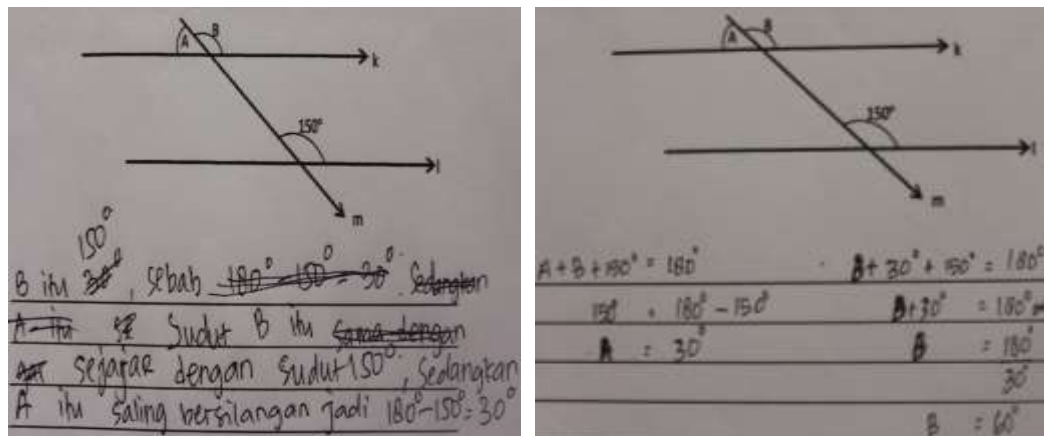 A B
k
150°
l
m
150°
B itu 30°, sebab 180° 150° = 30°. Sedangkan
A itu Sudut B itu sama dengan
sejajar dengan sudut 150°, Sedangkan
A itu saling bersilangan jadi 180°-150°=30°
A B
k
150°
l
m
A+B+150° = 180°
150 = 180° - 150°
A = 30°
B+ 30° + 150° = 180°
B+30° = 180°
B = 180°
30°
B = 60°